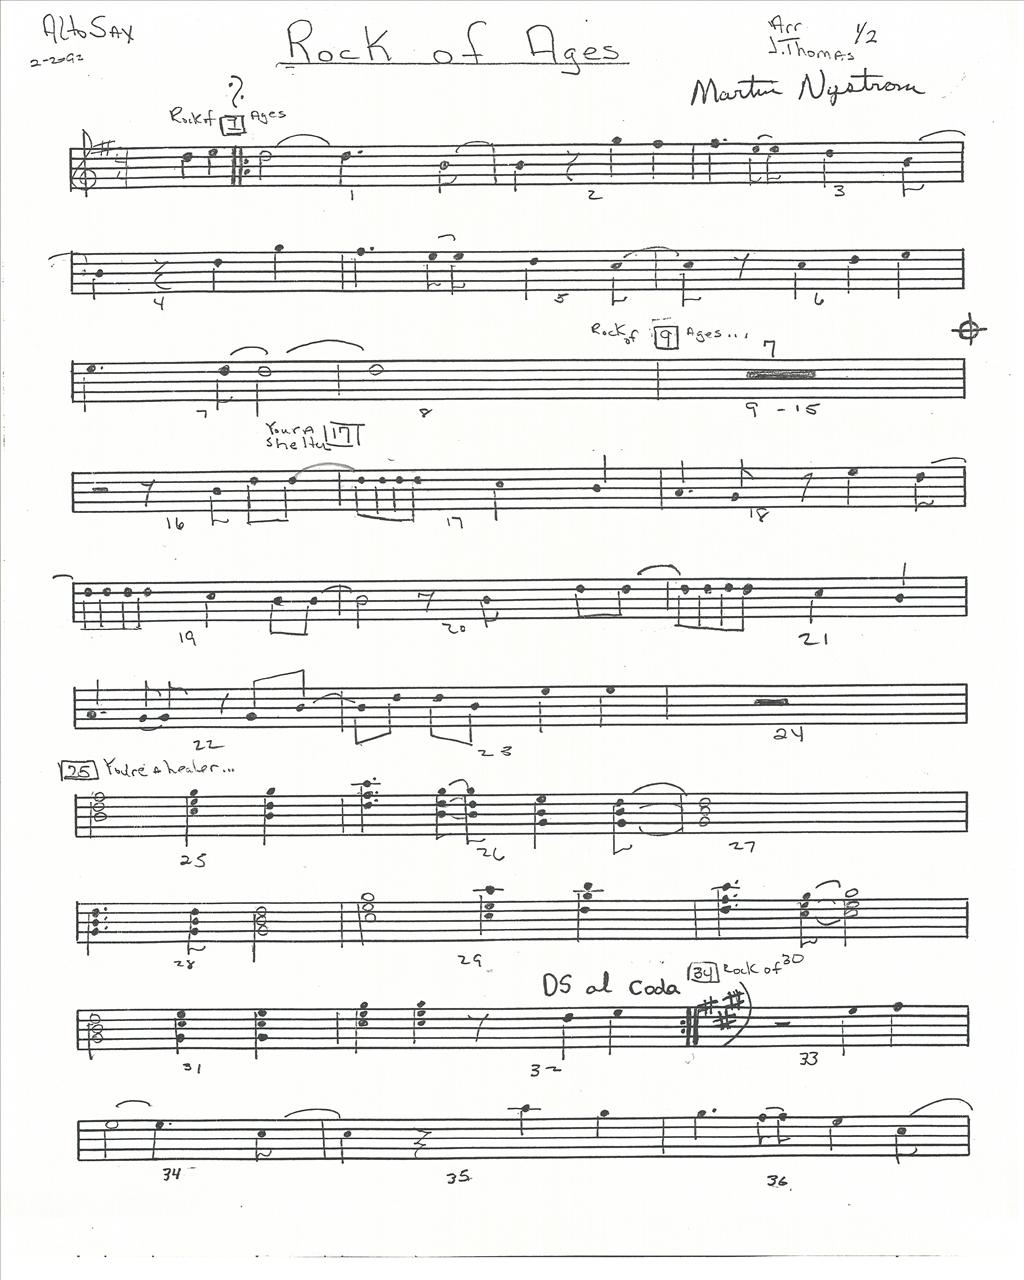 Alto Sax
Rock of Ages
Arr
J. Thomas
1/2
2-2092
Martin Nystrom
Rock of 1 Ages
1 2 3
4 5 6
Rock of 9 Ages...
7
7 8 9 - 15
Your A
Shelter 17
16 17 18
19 20 21
22 23 24
25 You're A healer...
25 26 27
28 29 30
DS al Coda 34 Rock of
31 32 33
34 35 36